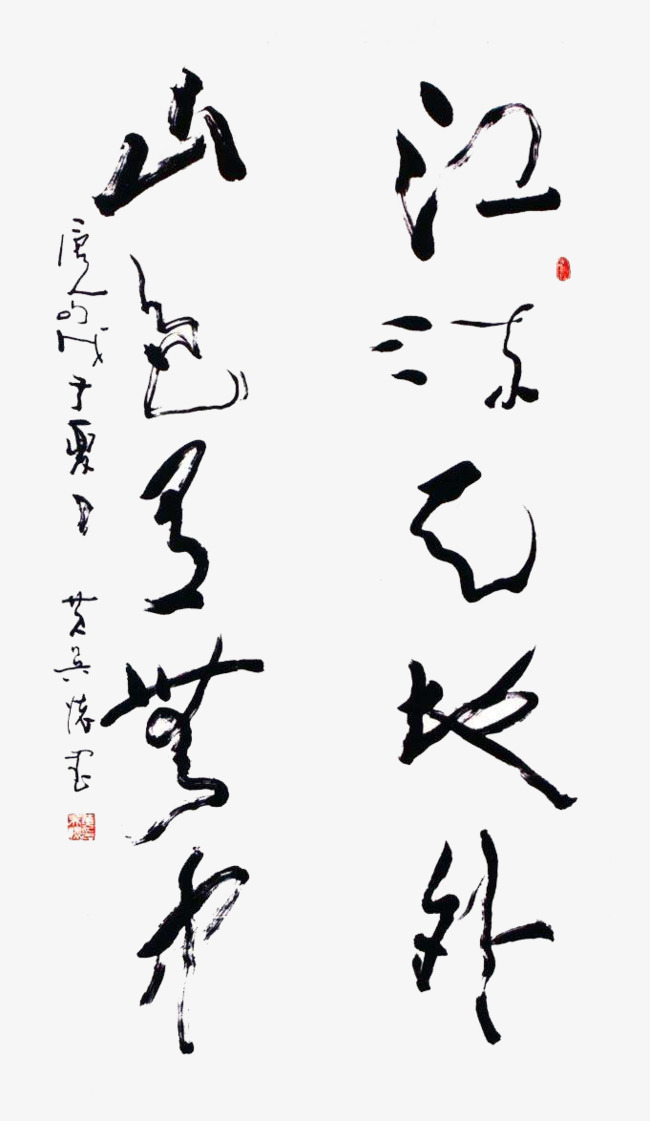 江流天地外
山色有無中
唐人句 戊子夏月 黄吴怀书